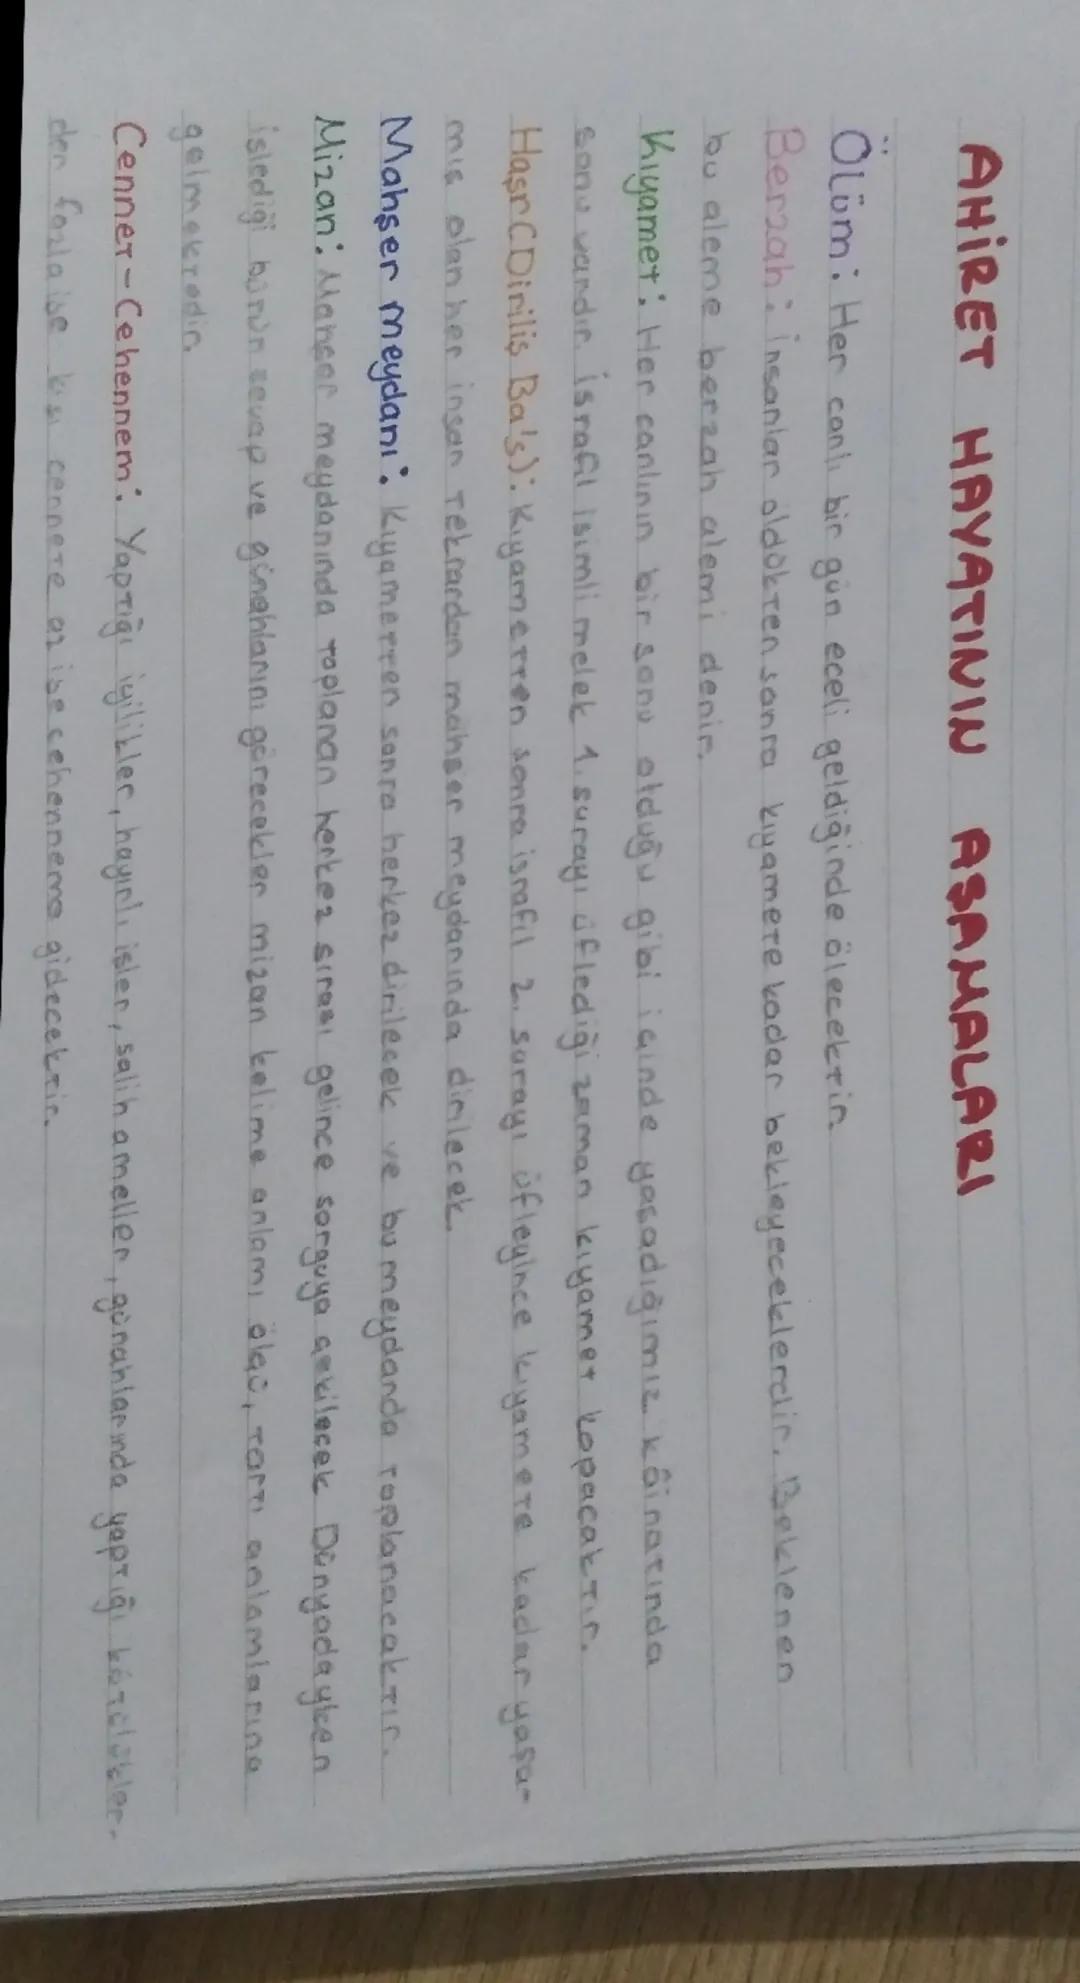 AHİRET HAYATININ AŞAMALARI
Ölüm: Her canlı bir gün eceli geldiğinde ölecektir.
Berzah: İnsanlar öldükten sonra kıyamete kadar bekleyeceklerdir. Beklenen
bu aleme berzah alemi denir.
Kıyamet: Her canlının bir sonu olduğu gibi içinde yaşadığımız kâinatında
sonu vardır. İsrafil isimli melek 1. surayı üflediği zaman kıyamet kopacaktır.
Haşr(Diriliş Ba's): Kıyametten sonra israfil 2. surayı üfleyince kıyamete kadar yaşa-
mış olan her insan tekrardan mahşer meydanında dirilecek.
Mahşer meydanı: Kıyametten sonra herkez dirilecek ve bu meydanda toplanacaktır.
Mizan: Mahşer meydanında toplanan herkez sırası gelince sorguya çekilecek Dünyadayken
işlediği bütün sevap ve günahlarını görecekler mizan kelime anlamı ölçü, tartı anlamlarına
gelmektedir.
Cennet-Cehennem: Yaptığı iyilikler, hayırlı işler, salih ameller, günahlarında yaptığı kötülükler-
den fazla ise kişi cennete az ise cehenneme gidecektir.